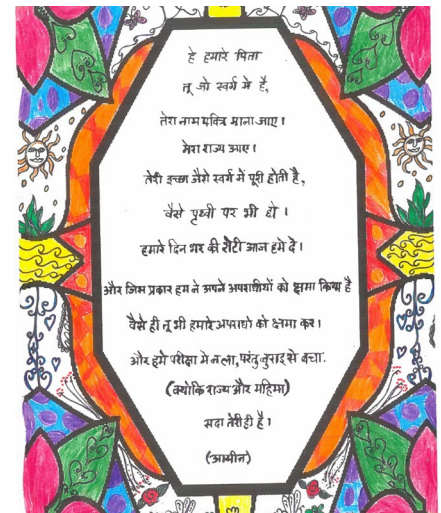 हे हमारे पिता
तू जो स्वर्ग मे है,
तेरा नाम पवित्र माना जाए।
मेरा राज्य आए।
तेरी इच्छा जैसे स्वर्ग में पूरी होती है,
वैसे पृथ्वी पर भी हो।
हमारे दिन भर की रोटी आज हमे दे।
और जिस प्रकार हमने अपने अपराधीयों को क्षमा किया है
वैसे ही तू भी हमारे अपराधो को क्षमा कर।
और हमें परीक्षा मे न ला, परंतु बुराइ से बचा.
(क्योकि राज्य और महिमा)
सदा तेरी ही है।
(आमीन)